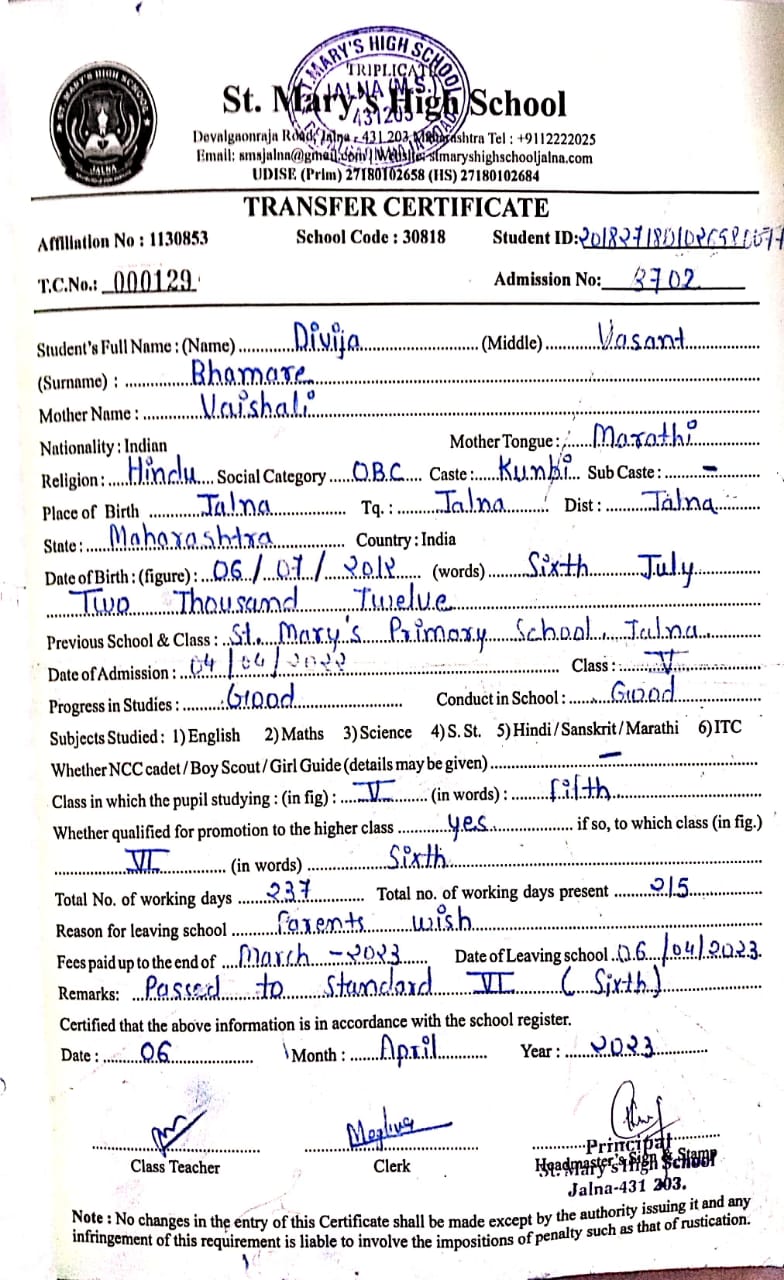 ST. MARY'S HIGH SCHOOL
TRIPLICATE
JALNA (M.S.)
431203
ST. MARY'S HIGH SCHOOL
JALNA
St. Mary's High School
Devalgaonraja Road, Jalna - 431 203, Maharashtra Tel : +9112222025
Email: smsjalna@gmail.com | Website: stmaryshighschooljalna.com
UDISE (Prim) 27180102658 (HS) 27180102684
TRANSFER CERTIFICATE
Affiliation No : 1130853 School Code : 30818 Student ID:
T.C.No.: 000129 Admission No: 3702
Student's Full Name : (Name) Divija (Middle) Vasant
(Surname) : Bhamare
Mother Name : Vaishali
Nationality : Indian Mother Tongue : Marathi
Religion : Hindu Social Category OBC Caste : Kunbi Sub Caste : -
Place of Birth Jalna Tq. : Jalna Dist : Jalna
State : Maharashtra Country : India
Date of Birth : (figure) : 06/07/2012 (words) Sixth July
Two Thousand Twelve
Previous School & Class : St. Mary's Primary School, Jalna.
Date of Admission : 04/04/2022 Class : V
Progress in Studies : Good Conduct in School : Good
Subjects Studied : 1) English 2) Maths 3) Science 4) S. St. 5) Hindi / Sanskrit / Marathi 6) ITC
Whether NCC cadet / Boy Scout / Girl Guide (details may be given) -
Class in which the pupil studying : (in fig) : V (in words) : fifth
Whether qualified for promotion to the higher class yes if so, to which class (in fig.)
VI (in words) Sixth
Total No. of working days 237 Total no. of working days present 215
Reason for leaving school Parents wish
Fees paid up to the end of March - 2023 Date of Leaving school 06/04/2023.
Remarks: Passed to Standard VI (Sixth)
Certified that the above information is in accordance with the school register.
Date : 06 Month : April Year : 2023
Meghna
Class Teacher Clerk Headmaster's Sign & Stamp
Principal
St. Mary's High School
Jalna-431 203.
Note : No changes in the entry of this Certificate shall be made except by the authority issuing it and any
infringement of this requirement is liable to involve the impositions of penalty such as that of rustication.